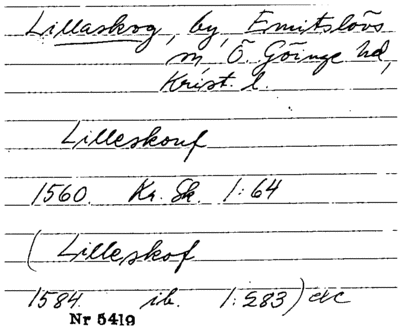 Lillaskog, by, Emitslövs
sn Ö. Göinge hd,
Krist. l.
Lilleskouf
1560. Kr. Sk. 1:64
(Lilleskof
1584. ib. 1:283) etc
Nr 5419